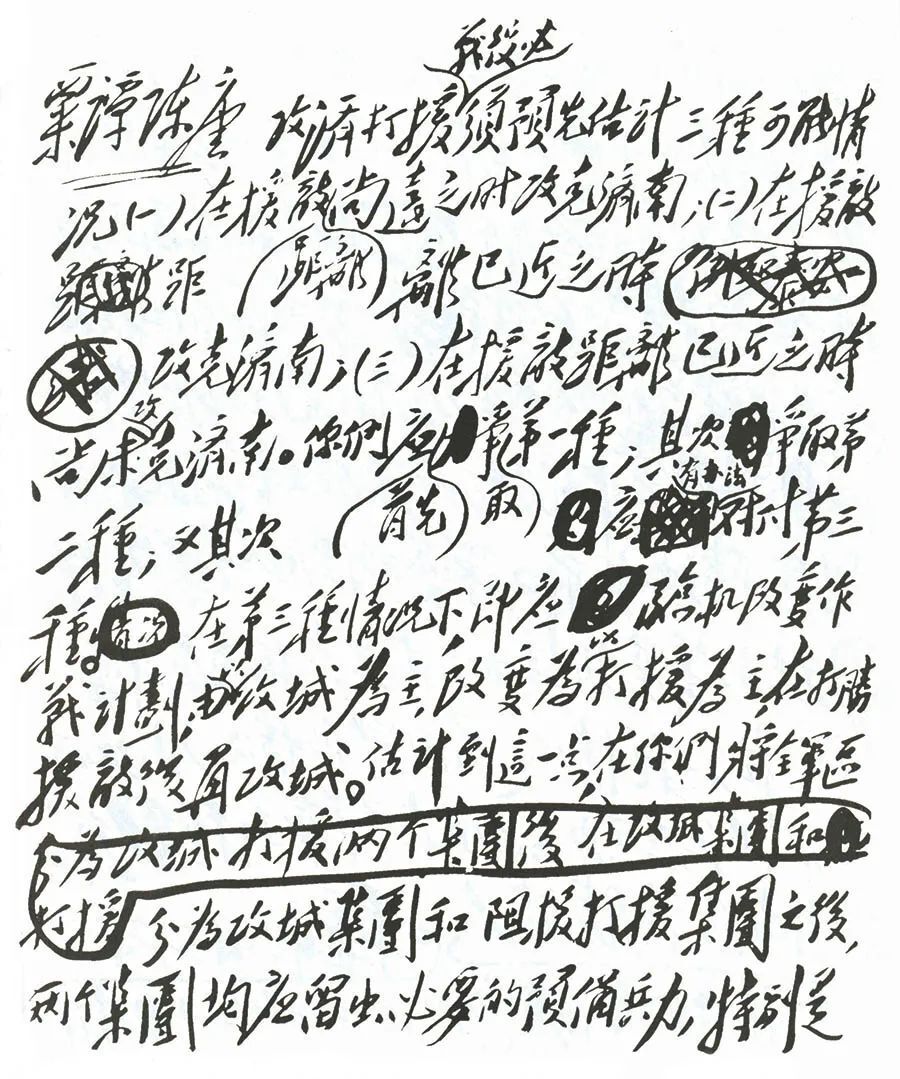 戰役必
粟譚陈唐 攻濟打援須預先估計三種可能情
况(一)在援敵尚遠之时攻克濟南;(二)在援敵
距
距離
離已近之時
攻克濟南;(三)在援敵距離已近之時
攻
尚未克濟南。你們应爭第一種;其次爭取第
首先 取
有办法
二種;又其次 应对付第三
種。在第三種情况下,即应臨机改變作
戰計劃,由攻城為主,改變為打援為主,在打勝
援敵後再攻城。估計到這一点,在你們將全軍區
分為攻城打援两个集團後 在攻城集團和
打援 分為攻城集團和阻援打援集團之後,
两个集團均应留出必要的預備兵力,特别是